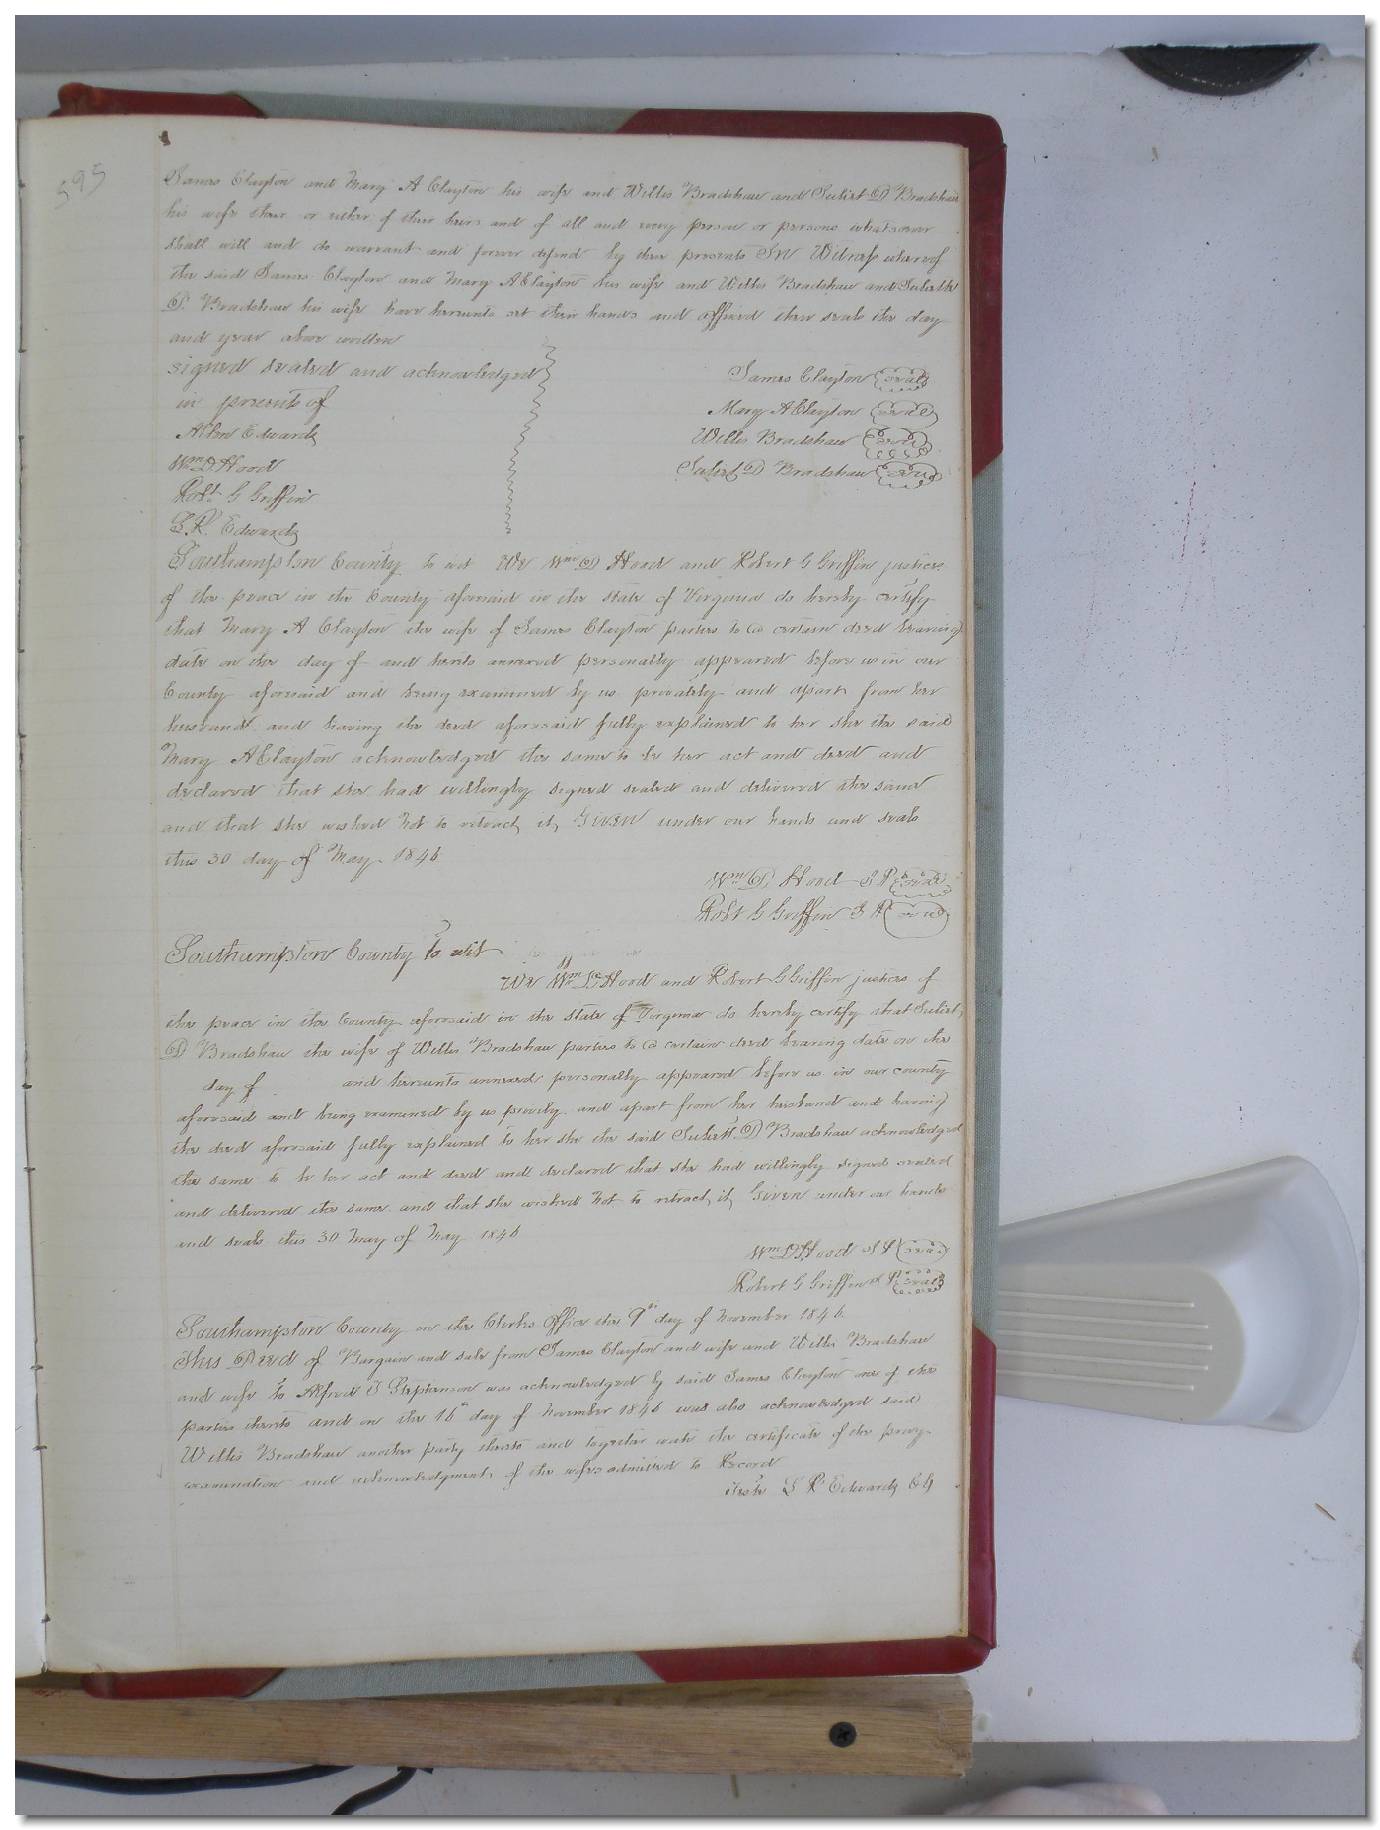 595
James Clayton and Mary A Clayton his wife and Willis Bradshaw and Juliet D Bradshaw
his wife their or either of their heirs and of all and every person or persons whatsoever
shall will and do warrant and forever defend by these presents In Witness whereof
the said James Clayton and Mary A Clayton his wife and Willis Bradshaw and
D. Bradshaw his wife have hereunto set their hands and affixed their seals the day
and year above written
signed sealed and acknowledged
in presents of
James Clayton seal
Mary A Clayton seal
Willis Bradshaw seal
Juliet D Bradshaw seal
Allen Edwards
Wm D Hood
Robt G Griffin
L R Edwards
Southampton County to wit We Wm D Hood and Robert G Griffin justices
of the peace in the County aforesaid in the state of Virginia do hereby certify
that Mary A Clayton the wife of James Clayton parties to a certain deed bearing
date on the day of and hereto annexed personally appeared before us in our
County aforesaid and being examined by us privately and apart from her
husband and having the deed aforesaid fully explained to her she the said
Mary A Clayton acknowledged the same to be her act and deed and
declared that she had willingly signed sealed and delivered the same
and that she wished not to retract it, Given under our hands and seals
this 30 day of May 1846
Wm D Hood J P seal
Robt G Griffin J P seal
Southampton County to wit
We Wm D Hood and Robert G Griffin justices of
the peace in the County aforesaid in the state of Virginia do hereby certify that Juliet
D Bradshaw the wife of Willis Bradshaw parties to a certain deed bearing date on the
day of and hereunto annexed personally appeared before us in our county
aforesaid and being examined by us privily and apart from her husband and having
the deed aforesaid fully explained to her she the said Juliet D Bradshaw acknowledged
the same to be her act and deed and declared that she had willingly signed sealed
and delivered the same and that she wished not to retract it, Given under our hands
and seals this 30 may of May 1846
Wm D Hood J P seal
Robert G Griffin J P seal
Southampton County on the Clerks Office the 9th day of November 1846
This Deed of Bargain and sale from James Clayton and wife and Willis Bradshaw
and wife to Alfred J Stephenson was acknowledged by said James Clayton one of the
parties thereto and on the 16th day of November 1846 was also acknowledged said
Willis Bradshaw another party thereto and together with the certificate of the privy
examination and acknowledgments of the wifes admitted to Record
Teste L R Edwards